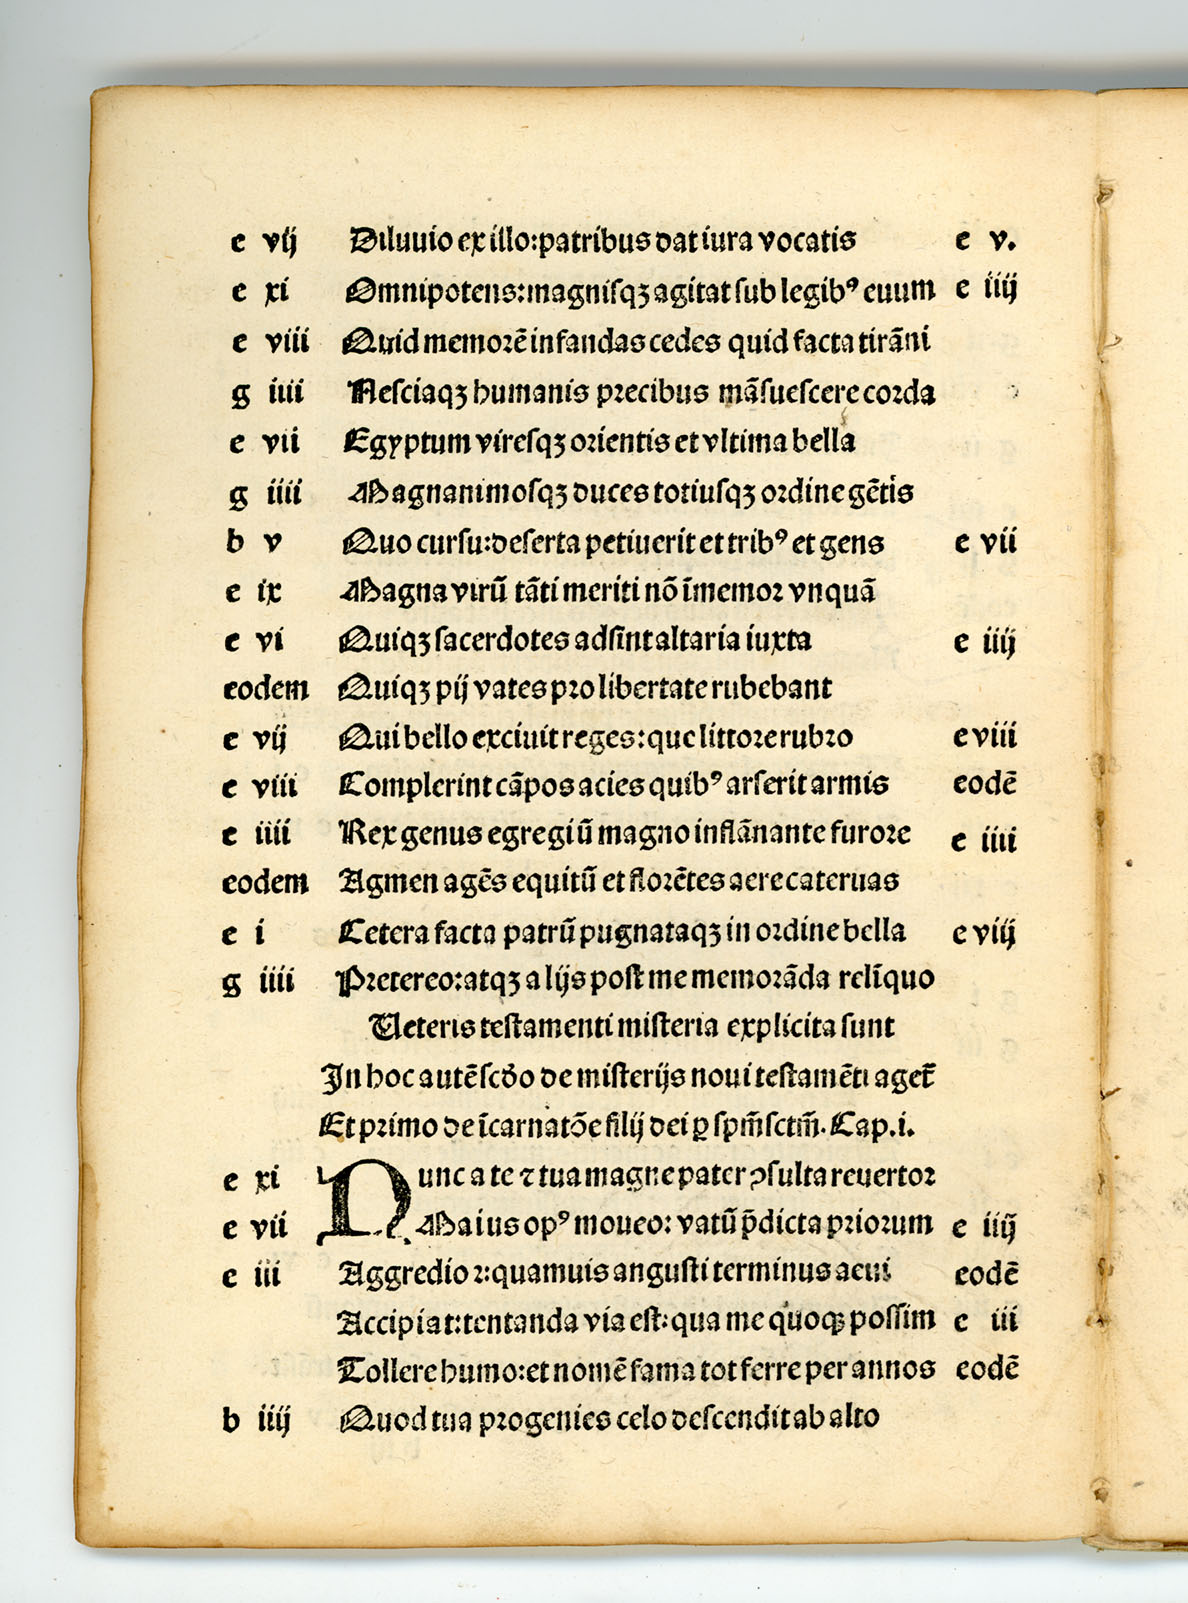 e vij Diluuio ex illo:patribus dat iura vocatis e v.
e xi Omnipotens:magnisqȝ agitat sub legibꝰ euum e iiij
e viii Quid memorē infandas cedes quid facta tirāni
g iiii Nesciaqȝ humanis precibus māsuescere corda
e vii Egyptum viresqȝ orientis et vltima bella
g iiii Magnanimosqȝ duces totiusqȝ ordine gētis
b v Quo cursu:deserta petiuerit et tribꝰ et gens e vii
e ix Magna virū tāti meriti nō īmemor vnquā
e vi Quiqȝ sacerdotes adsīnt altaria iuxta e iiij
eodem Quiqȝ pij vates pro libertate rubebant
e vij Qui bello exciuit reges:que littore rubro e viii
e viii Complerint cāpos acies quibꝰ arserit armis eodē
e iiii Rex genus egregiū magno inflānante furore e iiii
eodem Agmen agēs equitū et florētes aere cateruas
e i Cetera facta patrū pugnataqȝ in ordine bella e viij
g iiii Pretereo:atqȝ alijs post me memorāda relīquo
Ueteris testamenti misteria explicita sunt
In hoc autē scd̄o de misterijs noui testamēti aget̄
Et primo de īcarnatōe filij dei ꝑ spm̄ sctm̄. Cap.i.
e xi Nunc a te ⁊ tua magne pater ꝯsulta reuertor
e vii Maius opꝰ moueo: vatū p̄dicta priorum e iiij
e iii Aggredior:quamuis angusti terminus aeui eodē
Accipiat:tentanda via est:qua me quoqȝ possim e iii
Tollere humo:et nomē fama tot ferre per annos eodē
b iiij Quod tua progenies celo descendit ab alto